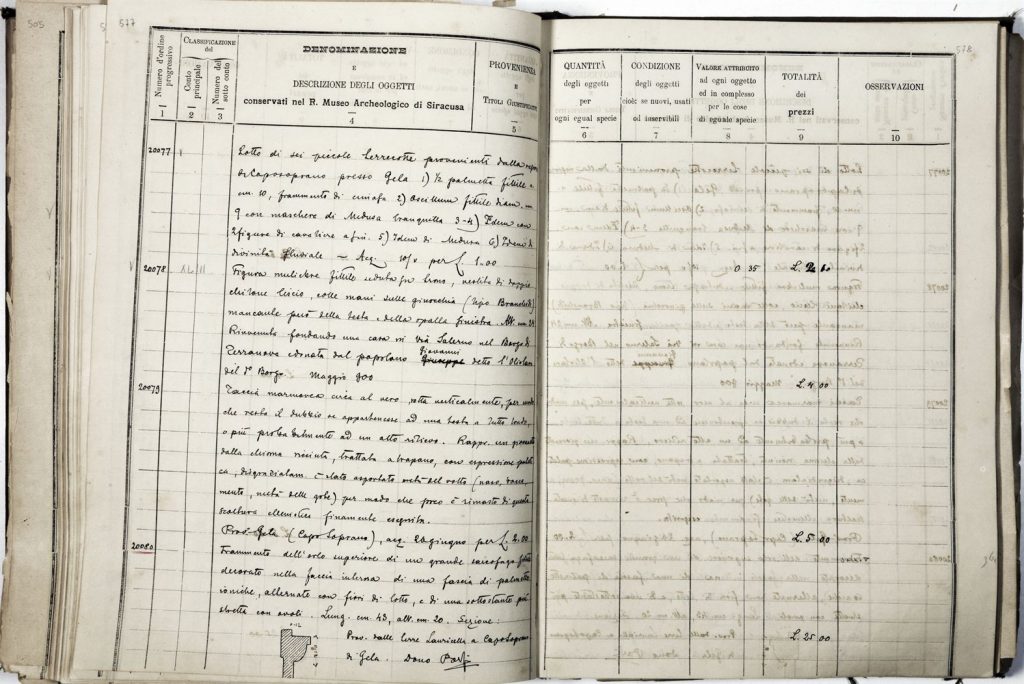 505
577
Numero d'ordine progressivo
1
CLASSIFICAZIONE
del
Conto principale
2
Numero del sotto conto
3
DENOMINAZIONE
E
DESCRIZIONE DEGLI OGGETTI
conservati nel R. Museo Archeologico di Siracusa
4
PROVENIENZA
E
TITOLI GIUSTIFICATIVI
5
20077 Lotto di sei piccole terrecotte provenienti dalla
di Caposoprano presso Gela 1) ½ palmetta fittile a.
cm. 10, frammento di cimasa. 2) Oscillum fittile diam. cm.
9 con maschera di Medusa tranquilla 3-4) Idem con
2 figure di cavaliere a fin. 5) Idem di Medusa 6) Idem di
divinità fluviale — Acq. per £ 1.00
20078 Figura muliebre fittile seduta su trono, vestita di doppio
chitone liscio, colle mani sulle ginocchia (tipo Branchidi)
mancante però della testa e della spalla sinistra. Alt. cm. 24
Rinvenuta fondando una casa in via Salerno nel Borgo di
Terranova e donata dal popolano Giovanni Giuseppe detto l'
del 1° Borgo Maggio 900
20079 Faccia marmorea circa al vero, rotta verticalmente, per modo
che resta il dubbio se appartenesse ad una testa a tutto tondo,
o più probabilmente ad un alto rilievo. Rappr. un giovanetto
dalla chioma ricciuta, trattata a trapano, con espressione
ca, disgraziatam. è stato asportato metà del volto (naso,
mento, metà delle gote) per modo che poco è rimasto di questa
scoltura ellenistica finamente eseguita.
Prov. Gela (Capo Soprano), acq. 20 giugno per £. 2.00
20080 Frammento dell'orlo superiore di un grande sarcofago fittile
decorato nella faccia interna di una fascia di palmette
ioniche, alternate con fiori di loto, e di una sottostante più
stretta con ovoli. Lung. cm. 43, alt. cm. 20. Sezione:
Prov. dalle terre Lauricella a Caposoprano
di Gela. Dono
578
QUANTITÀ
degli oggetti
per
ogni egual specie
6
CONDIZIONE
degli oggetti
cioè: se nuovi, usati
od inservibili
7
VALORE ATTRIBUITO
ad ogni oggetto
ed in complesso
per le cose
di eguale specie
8
TOTALITÀ
dei
prezzi
9
OSSERVAZIONI
10
0 35
L. 4 00
L. 5 00
L. 25 00